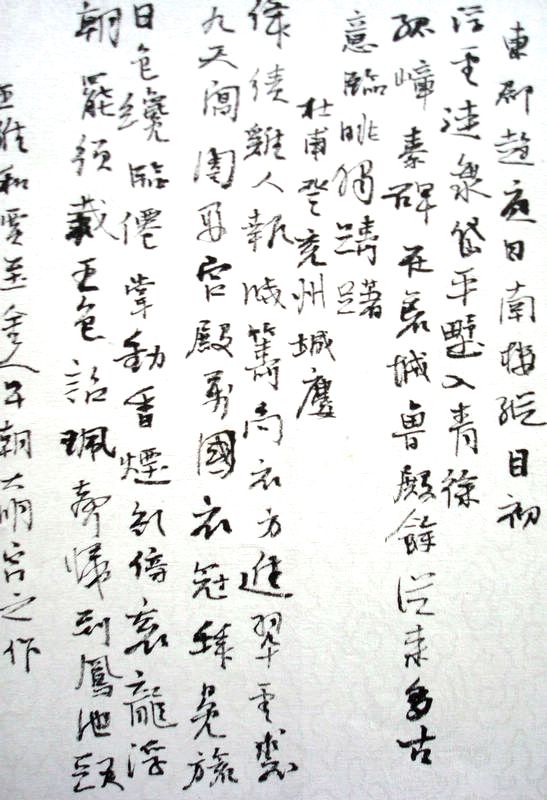 東郡趨庭日南樓縱目初
浮雲連海岱平野入青徐
孤嶂秦碑在荒城魯殿餘從來多古
意臨眺獨躊躇
杜甫登兗州城樓
絳幘雞人報曉籌尚衣方進翠雲裘
九天閶闔開宮殿萬國衣冠拜冕旒
日色纔臨僊掌動香煙欲傍袞龍浮
朝罷須裁五色詔珮聲歸到鳳池頭
王維和賈至舍人早朝大明宮之作